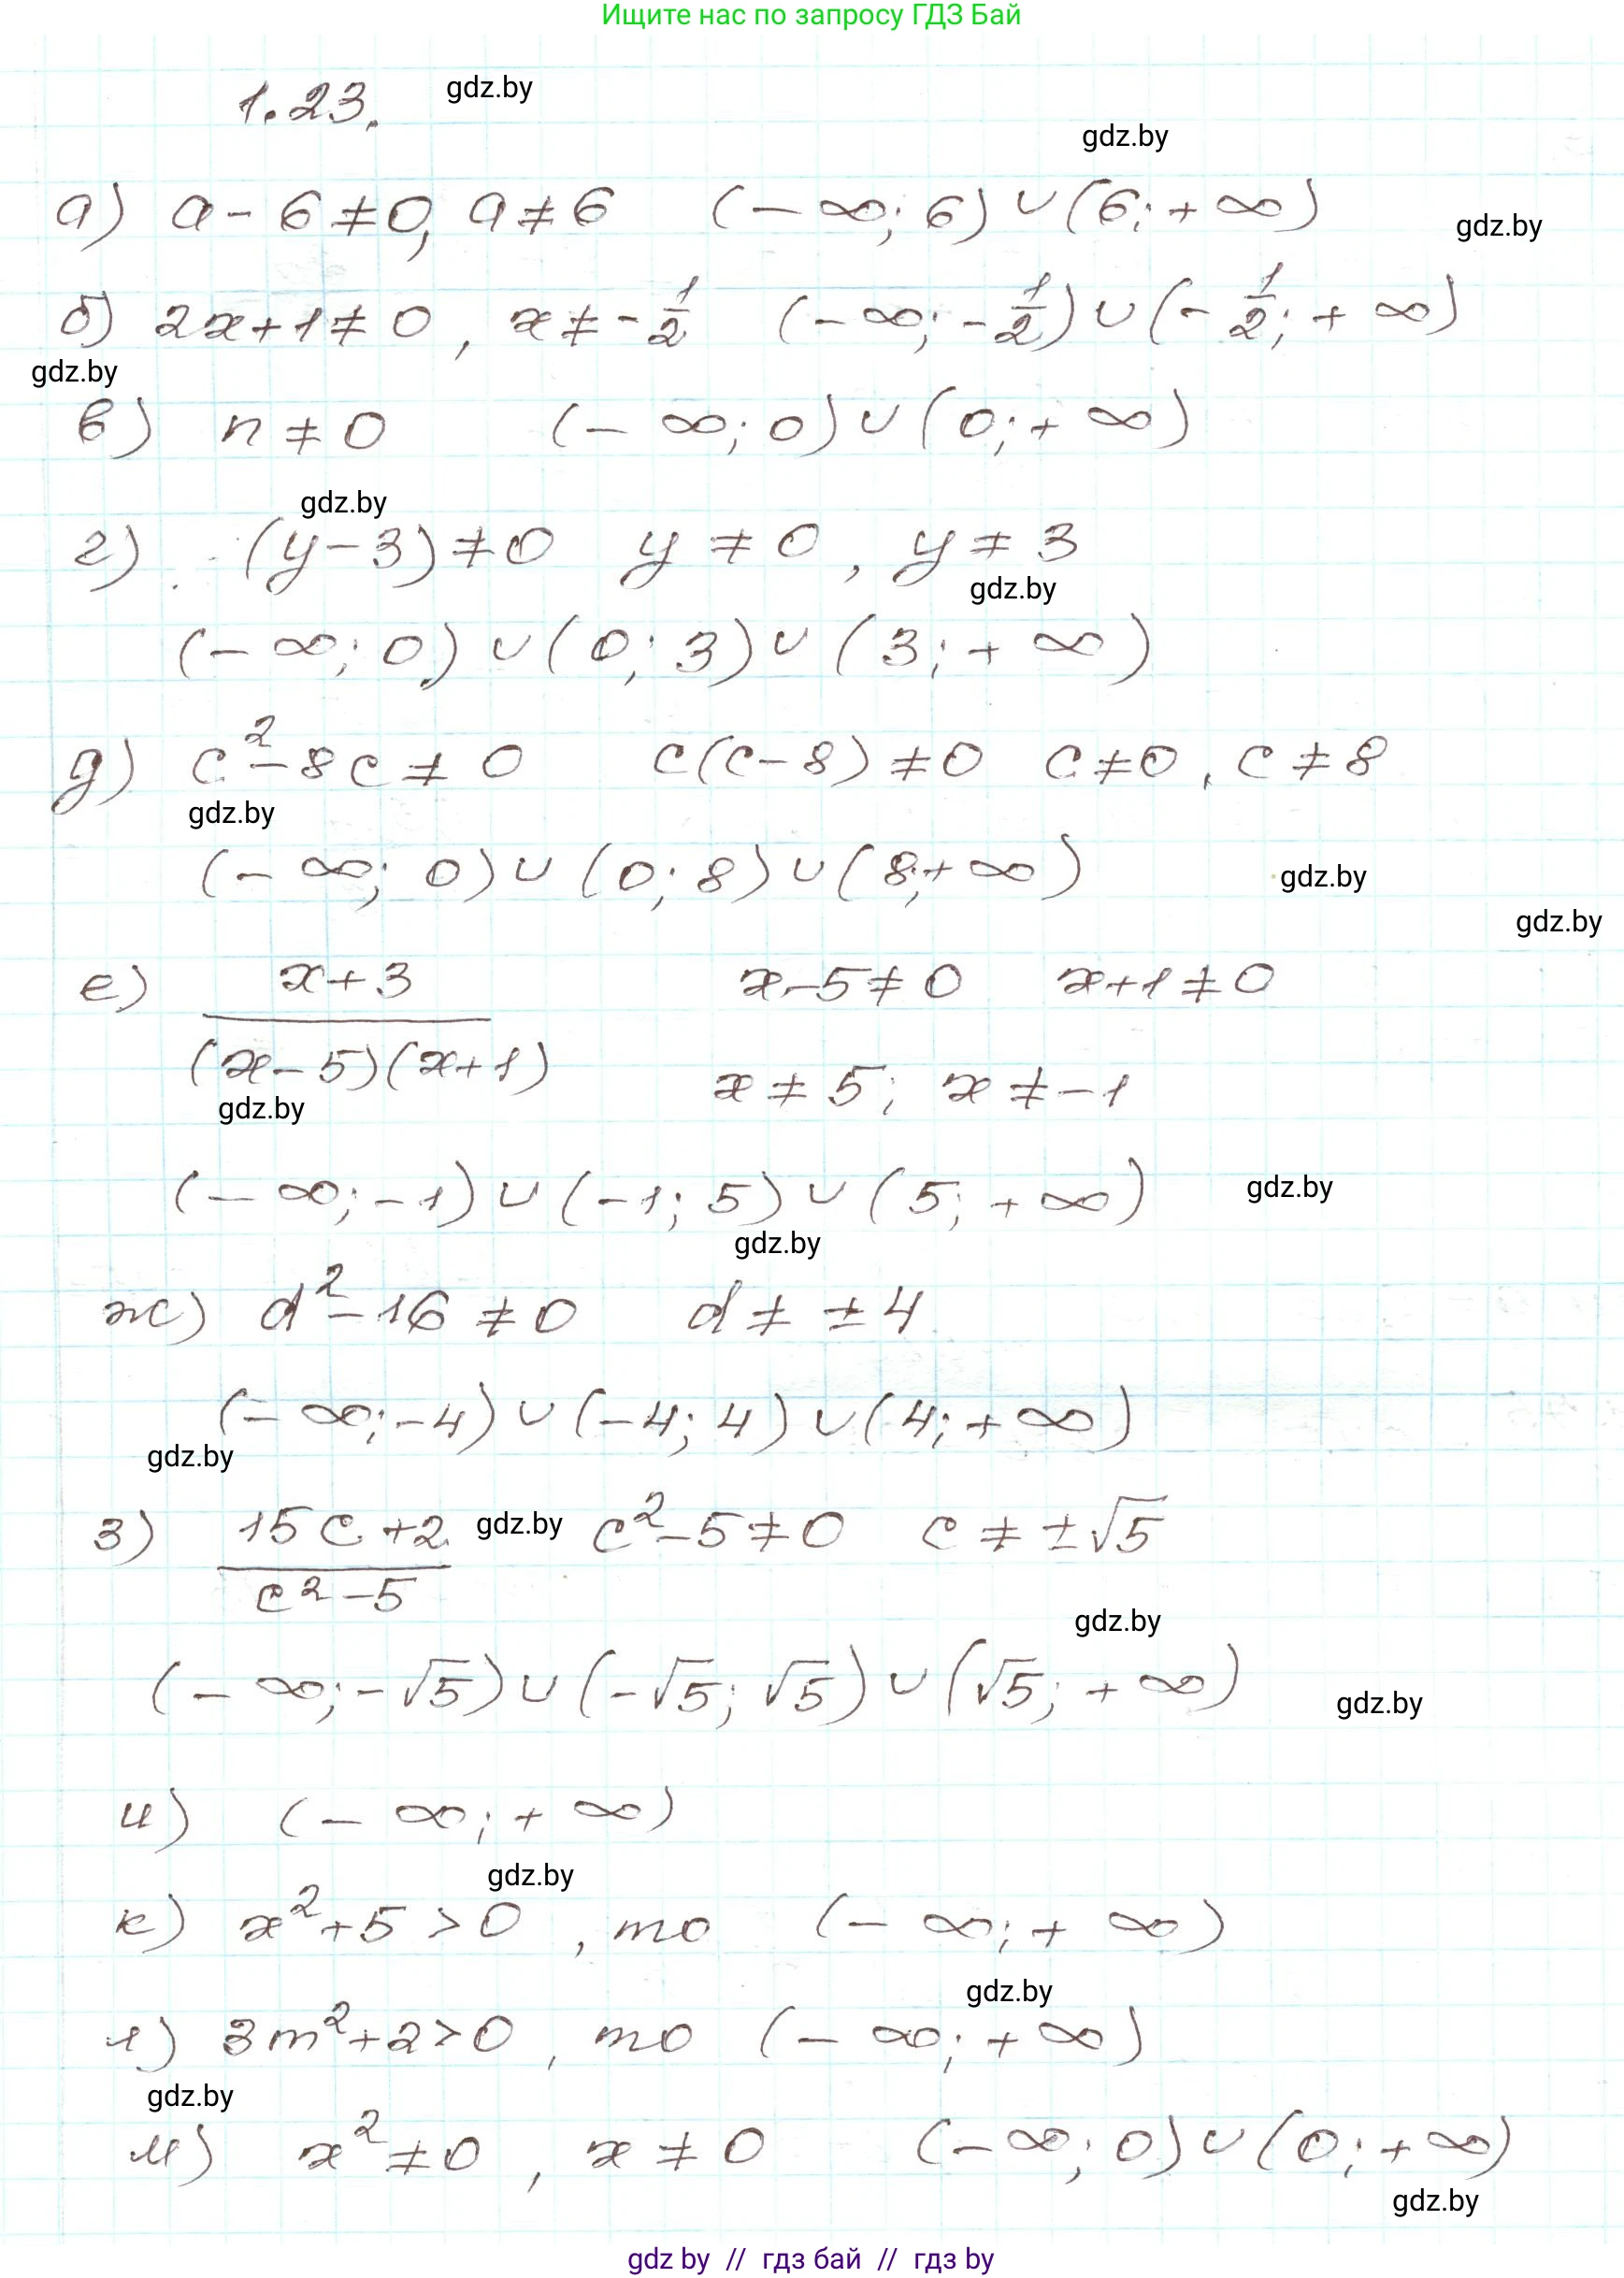 Ищите нас по запросу ГДЗ Бай
1.23. gdz.by
gdz.by
а) a - 6 ≠ 0, a ≠ 6 (- ∞; 6) ∪ (6; + ∞) gdz.by
б) 2x + 1 ≠ 0, x ≠ - 1/2 (- ∞; - 1/2) ∪ (- 1/2; + ∞)
gdz.by
в) n ≠ 0 (- ∞; 0) ∪ (0; + ∞)
gdz.by
г) (y - 3) ≠ 0 y ≠ 0, y ≠ 3
gdz.by
(- ∞; 0) ∪ (0; 3) ∪ (3; + ∞)
д) c² - 8c ≠ 0 c(c - 8) ≠ 0 c ≠ 0, c ≠ 8
gdz.by
(- ∞; 0) ∪ (0; 8) ∪ (8; + ∞) gdz.by
gdz.by
е) x + 3 x - 5 ≠ 0 x + 1 ≠ 0
(x - 5)(x + 1) x ≠ 5; x ≠ - 1
gdz.by
(- ∞; - 1) ∪ (- 1; 5) ∪ (5; + ∞) gdz.by
gdz.by
ж) d² - 16 ≠ 0 d ≠ ± 4
(- ∞; - 4) ∪ (- 4; 4) ∪ (4; + ∞)
gdz.by
з) 15c + 2 gdz.by c² - 5 ≠ 0 c ≠ ±√5
c² - 5
gdz.by
(- ∞; - √5) ∪ (- √5; √5) ∪ (√5; + ∞) gdz.by
и) (- ∞; + ∞)
gdz.by
к) x² + 5 > 0, то (- ∞; + ∞)
gdz.by
л) 3m² + 2 > 0, то (- ∞; + ∞)
gdz.by
м) x² ≠ 0, x ≠ 0 (- ∞; 0) ∪ (0; + ∞)
gdz.by
gdz by // гдз бай // гдз by